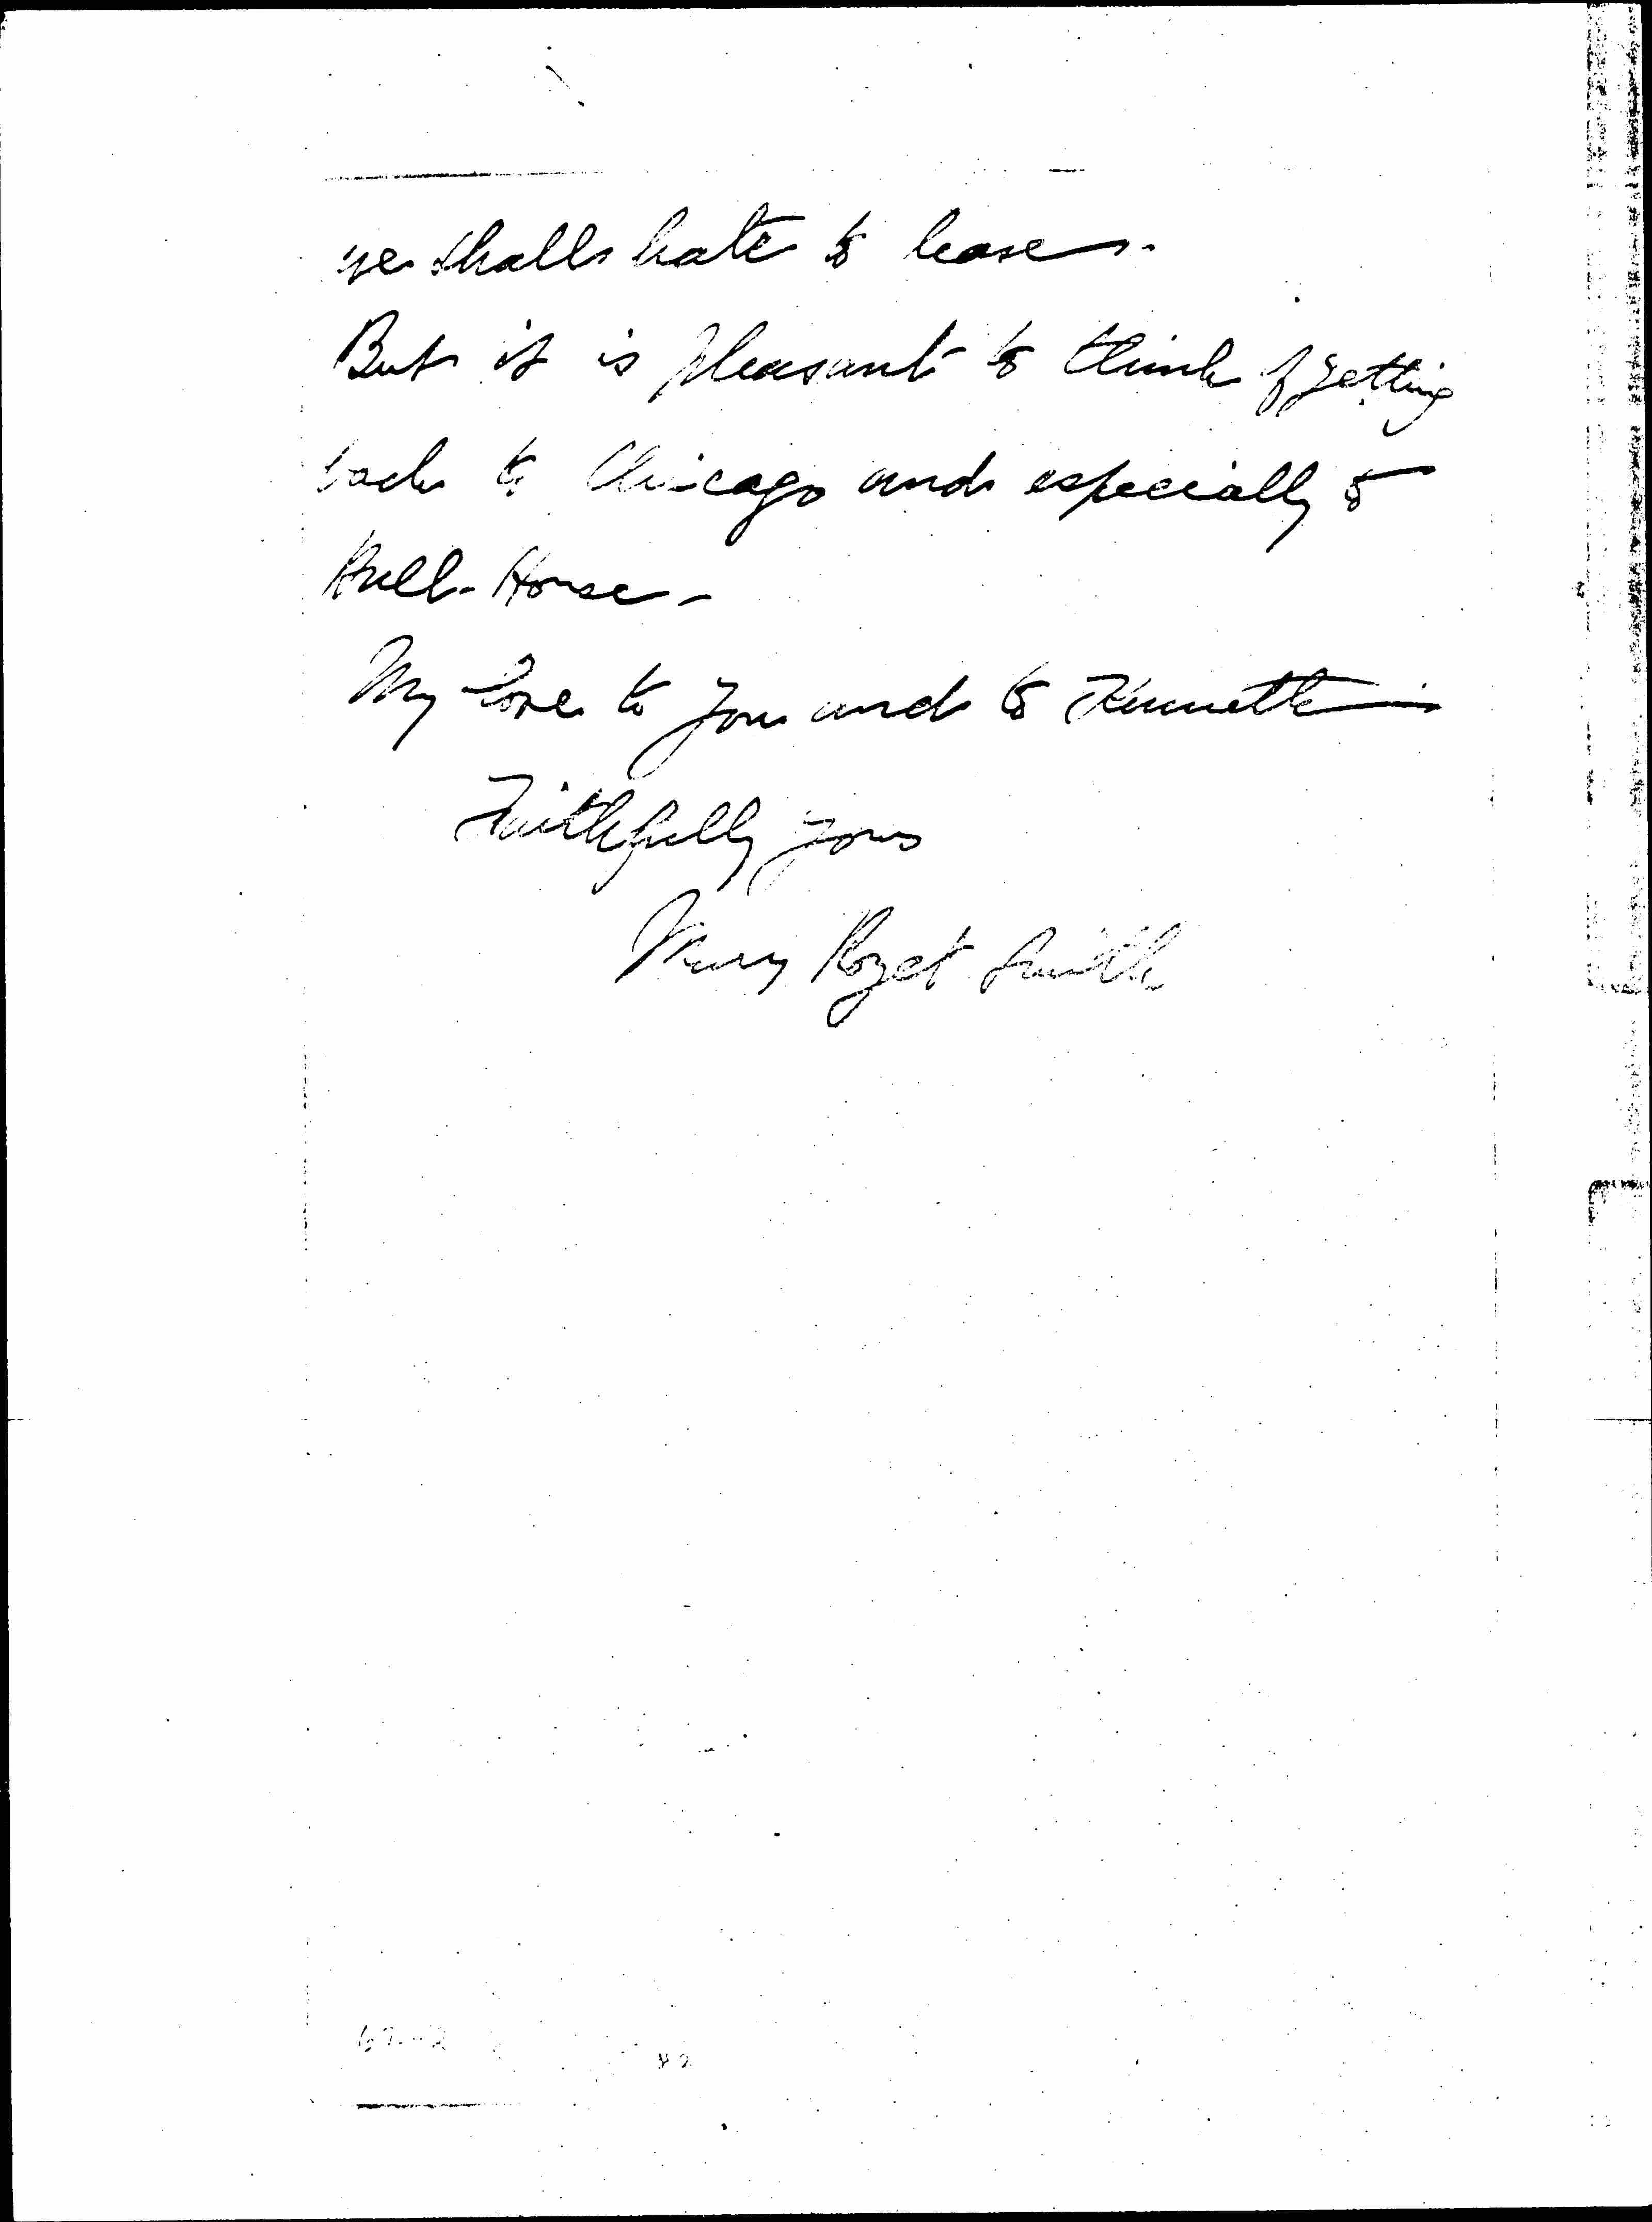 we shall hate to leave.
But it is pleasant to think of getting
back to Chicago and especially to
Hull-House -
My love to you and to Kenneth -
Faithfully yours
Mary Rozet Smith